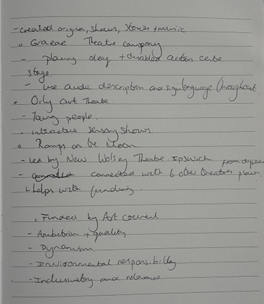 - created original shows, stories + music
• Graeae Theatre company
- placing deaf + disabled actors centre
stage
- use audio description and sign language throughout
• Oily cart Theatre
- Young people
• interactive sensory shows
• Ramps on the Moon
- Led by New Wolsey Theatre Ipswich
- connected with 6 other theatres
- Helps with funding
• Funded by Art council
- Ambition + quality
- Dynamism
- Environmental responsibility
- Inclusivity and relevance